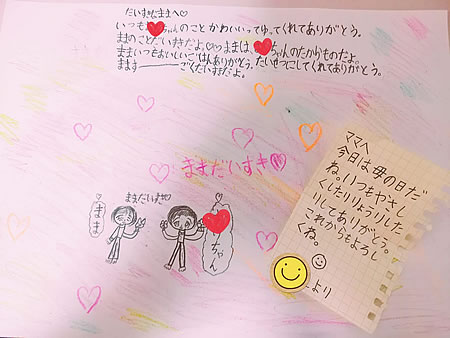 だいすきなままへ♡
いつも❤ちゃんのこと かわいいってゆってくれてありがとう。
ままのことだいすきだよ。♡♡ままは、❤ちゃんのたからものだよ。
ままいつもおいしいごはんありがとう。たいせつにしてくれてありがとう。
まます―――ごくだいすきだよ。
ままだいすき♡
ままだいすき♡
まま
❤ちゃん
ママへ
今日は母の日だ
ね。いつもやさし
くしたりりょうりした
りしてありがとう。
これからもよろし
くね。
より